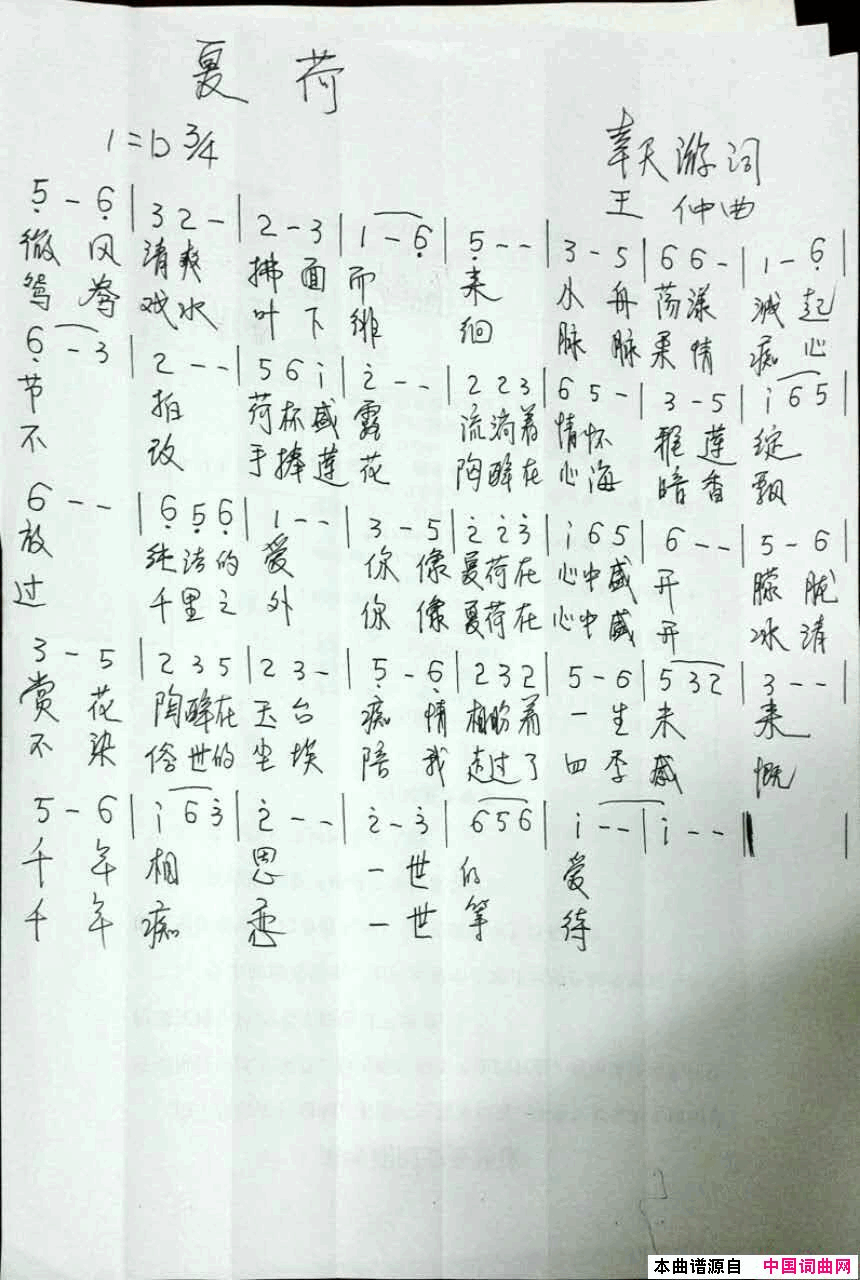 夏 荷
1=D 3/4
奉天游词
王 仲曲
5̣ - 6̣ | 3 2 - | 2 - 3 | 1 - 6̣ | 5̣ - - | 3 - 5 | 6 6 - | 1 - 6̣ |
微 风 清 爽 拂 面 而 来 小 舟 荡 漾 溅 起
鸳 鸯 戏 水 叶 下 徘 徊 脉 脉 柔 情 痴 心
6̣ - 3 | 2 - - | 5 6 i | 2̇ - - | 2 2 3 | 6 5 - | 3 - 5 | i 6 5 |
节 拍 荷 杯 盛 露 流淌着 情怀 莲 绽
不 改 手 捧 莲 花 陶醉在 心海 暗 香 飘
6 - - | 6̣ 5̣ 6̣ | 1 - - | 3 - 5 | 2̇ 2̇ 3̇ | i 6 5 | 6 - - | 5 - 6 |
放 纯洁的 爱 你 像 夏荷在 心中盛 开 朦 胧
过 千里之 外 你 像 夏荷在 心中盛 开 冰 清
3 - 5 | 2 3 5 | 2 3 - | 5̣ - 6̣ | 2 3 2 | 5 - 6 | 5 3 2 | 3 - - |
赏 花 陶醉在 玉 台 痴 情 相盼着 一 生 未 来
不 染 俗世的 尘 埃 陪 我 走过了 四 季 感 慨
5 - 6 | i 6 3̇ | 2̇ - - | 2̇ - 3̇ | 6 5 6 | i - - | i - - ‖
千 年 相 思 一 世 的 爱
千 年 痴 恋 一 世 等 待
本曲谱源自 中国词曲网